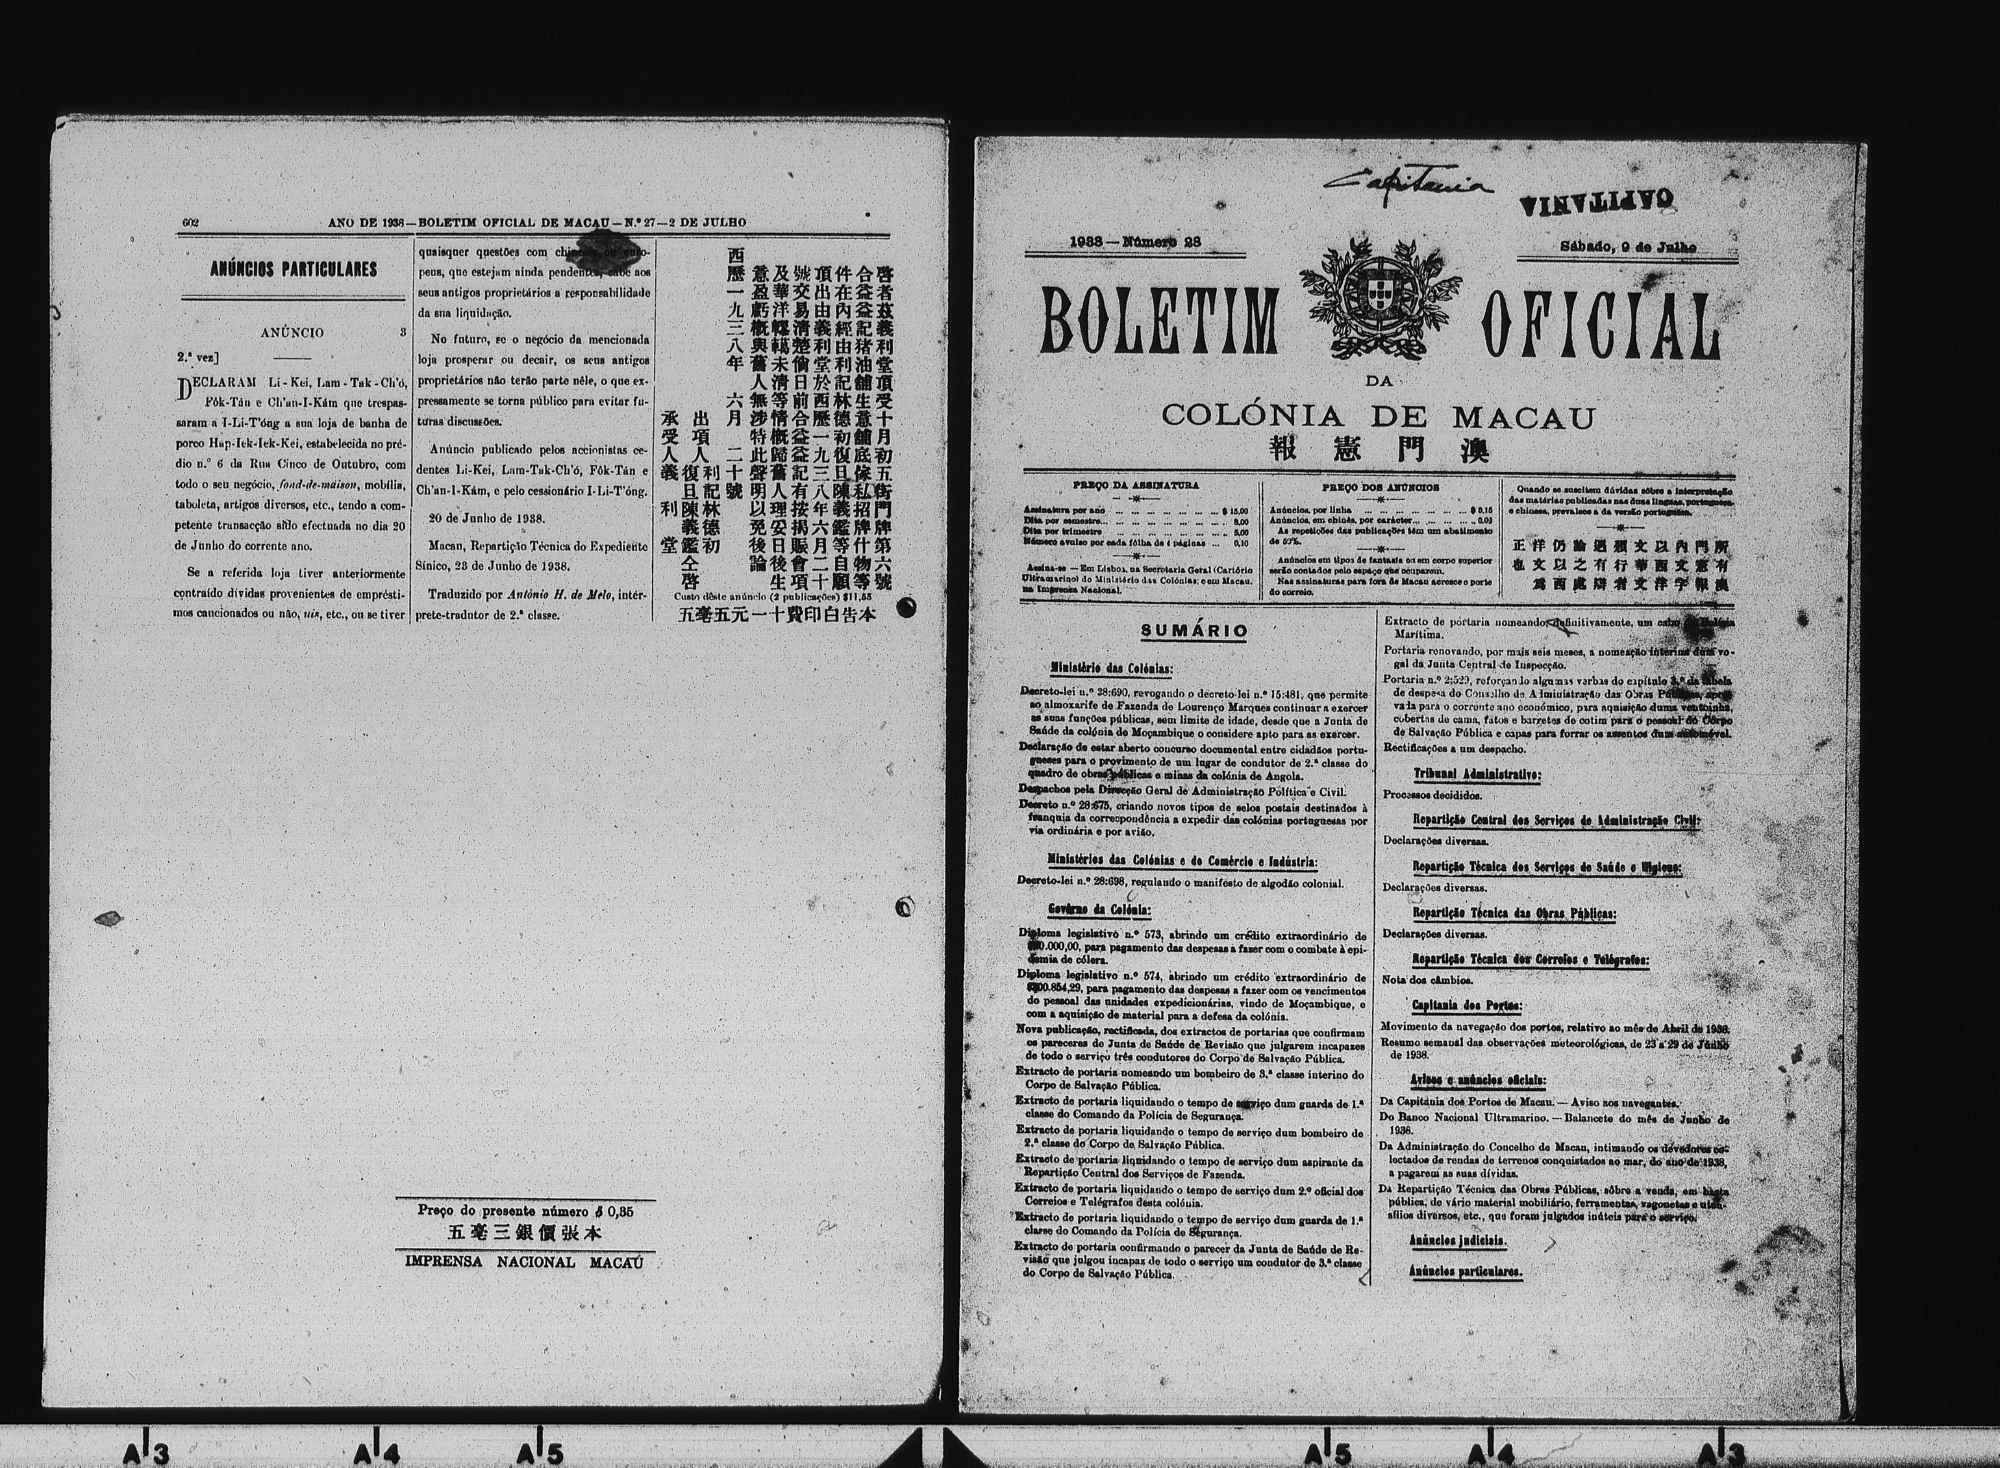 602
ANO DE 1938—BOLETIM OFICIAL DE MACAU—N.º 27—2 DE JULHO
ANÚNCIOS PARTICULARES
ANÚNCIO 3
2.ª vez]
DECLARAM Li-Kei, Lam-Tak-Ch'ó,
Fôk-Tán e Ch'an-I-Kám que trespas-
saram a I-Li-T'óng a sua loja de banha de
porco Hap-Iek-Iek-Kei, estabelecida no pré-
dio n.º 6 da Rua Cinco de Outubro, com
todo o seu negócio, fond-de-maison, mobília,
taboleta, artigos diversos, etc., tendo a com-
petente transacção sido efectuada no dia 20
de Junho do corrente ano.
Se a referida loja tiver anteriormente
contraído dívidas provenientes de emprésti-
mos caucionados ou não, uis, etc., ou se tiver
quaisquer questões com chineses ou euro-
peus, que estejam ainda pendentes, cabe aos
seus antigos proprietários a responsabilidade
da sua liquidação.
No futuro, se o negócio da mencionada
loja prosperar ou decair, os seus antigos
proprietários não terão parte nêle, o que ex-
pressamente se torna público para evitar fu-
turas discussões.
Anúncio publicado pelos accionistas ce-
dentes Li-Kei, Lam-Tak-Ch'ó, Fôk-Tán e
Ch'an-I-Kám, e pelo cessionário I-Li-T'óng.
20 de Junho de 1938.
Macau, Repartição Técnica do Expediente
Sínico, 23 de Junho de 1938.
Traduzido por António H. de Melo, intér-
prete-tradutor de 2.ª classe.
啓者茲義利堂頂受十月初五街門牌第六號
合益益記猪油舖生意舖底傢私招牌什物等
件在內經由利記林德初復旦陳義鑑等自願
頂出由義利堂於西歷一九三八年六月二十
號交易清楚倘日前合益益記有按揭賬會項
及華洋轇轕未清等情概歸舊人理妥日後生
意盈虧概與舊人無涉特此聲明以免後論
西歷一九三八年 六月 二十號
出項人 利記林德初
復旦陳義鑑仝啓
承受人義 利 堂
Custo dêste anúncio (2 publicações) $11,55
五毫五元一十費印白告本
Preço do presente número $ 0,35
五毫三銀價張本
IMPRENSA NACIONAL MACAU
Capitania
CAPITANIA
1938—Número 28
Sábado, 9 de Julho
BOLETIM OFICIAL
DA
COLÓNIA DE MACAU
報憲門澳
PREÇO DA ASSINATURA
Assinatura por ano ... $ 15,00
Dita por semestre ... 8,00
Dita por trimestre ... 5,00
Número avulso por cada fôlha de 4 páginas ... 0,10
Assina-se — Em Lisboa, na Secretaria Geral (Cartório
Ultramarino) do Ministério das Colónias; e em Macau,
na Imprensa Nacional.
PREÇO DOS ANÚNCIOS
Anúncios, por linha ... $ 0,15
Anúncios, em chinês, por carácter ... 0,03
As repetições das publicações têm um abatimento
de 50%.
Anúncios em tipos de fantasia ou em corpo superior
serão contados pelo espaço que ocuparem.
Nas assinaturas para fora de Macau acresce o porte
do correio.
Quando se suscitem dúvidas sôbre a interpretação
das matérias publicadas nas duas línguas, portuguesa
e chinesa, prevalece a da versão portuguesa.
正洋仍論遇類文以內門所
也文以之有行華西文憲有
爲西處辯者文洋字報澳
SUMÁRIO
Ministério das Colónias:
Decreto-lei n.º 28:690, revogando o decreto-lei n.º 15:481, que permite
ao almoxarife de Fazenda de Lourenço Marques continuar a exercer
as suas funções públicas, sem limite de idade, desde que a Junta de
Saúde da colónia de Moçambique o considere apto para as exercer.
Declaração de estar aberto concurso documental entre cidadãos portu-
gueses para o provimento de um lugar de condutor de 2.ª classe do
quadro de obras públicas e minas da colónia de Angola.
Despachos pela Direcção Geral de Administração Política e Civil.
Decreto n.º 28:675, criando novos tipos de selos postais destinados à
franquia da correspondência a expedir das colónias portuguesas por
via ordinária e por avião.
Ministérios das Colónias e do Comércio e Indústria:
Decreto-lei n.º 28:698, regulando o manifesto de algodão colonial.
Govêrno da Colónia:
Diploma legislativo n.º 573, abrindo um crédito extraordinário de
0.000,00, para pagamento das despesas a fazer com o combate à epi-
demia de cólera.
Diploma legislativo n.º 574, abrindo um crédito extraordinário de
00.854,29, para pagamento das despesas a fazer com os vencimentos
do pessoal das unidades expedicionárias, vindo de Moçambique, e
com a aquisição de material para a defesa da colónia.
Nova publicação, rectificada, dos extractos de portarias que confirmam
os pareceres de Junta de Saúde de Revisão que julgarem incapazes
de todo o serviço três condutores do Corpo de Salvação Pública.
Extracto de portaria nomeando um bombeiro de 3.ª classe interino do
Corpo de Salvação Pública.
Extracto de portaria liquidando o tempo de serviço dum guarda de 1.ª
classe do Comando da Polícia de Segurança.
Extracto de portaria liquidando o tempo de serviço dum bombeiro de
2.ª classe do Corpo de Salvação Pública.
Extracto de portaria liquidando o tempo de serviço dum aspirante da
Repartição Central dos Serviços de Fazenda.
Extracto de portaria liquidando o tempo de serviço dum 2.º oficial dos
Correios e Telégrafos desta colónia.
Extracto de portaria liquidando o tempo de serviço dum guarda de 1.ª
classe do Comando da Polícia de Segurança.
Extracto de portaria confirmando o parecer da Junta de Saúde de Re-
visão que julgou incapaz de todo o serviço um condutor de 3.ª classe
do Corpo de Salvação Pública.
Extracto de portaria nomeando, definitivamente, um cabo da Polícia
Marítima.
Portaria renovando, por mais seis meses, a nomeação interina dum vo-
gal da Junta Central de Inspecção.
Portaria n.º 2:529, reforçando algumas verbas do capítulo 3.º da tabela
de despesa do Conselho de Administração das Obras Públicas, apro-
vada para o corrente ano económico, para aquisição duma ventoinha,
cobertas de cama, fatos e barretes de cotim para o pessoal do Corpo
de Salvação Pública e capas para forrar os assentos dum automóvel.
Rectificações a um despacho.
Tribunal Administrativo:
Processos decididos.
Repartição Central dos Serviços de Administração Civil:
Declarações diversas.
Repartição Técnica dos Serviços de Saúde e Higiene:
Declarações diversas.
Repartição Técnica das Obras Públicas:
Declarações diversas.
Repartição Técnica dos Correios e Telégrafos:
Nota dos câmbios.
Capitania dos Portos:
Movimento da navegação dos portos, relativo ao mês de Abril de 1938.
Resumo semanal das observações meteorológicas, de 23 a 29 de Junho
de 1938.
Avisos e anúncios oficiais:
Da Capitania dos Portos de Macau. — Aviso aos navegantes.
Do Banco Nacional Ultramarino. — Balancete do mês de Junho de
1938.
Da Administração do Concelho de Macau, intimando os devedores co-
lectados de rendas de terrenos conquistados ao mar, do ano de 1938,
a pagarem as suas dívidas.
Da Repartição Técnica das Obras Públicas, sôbre a venda, em hasta
pública, de vário material mobiliário, ferramentas, vagonetas e uten-
sílios diversos, etc., que foram julgados inúteis para o serviço.
Anúncios judiciais.
Anúncios particulares.
A3 A4 A5 A5 A4 A3